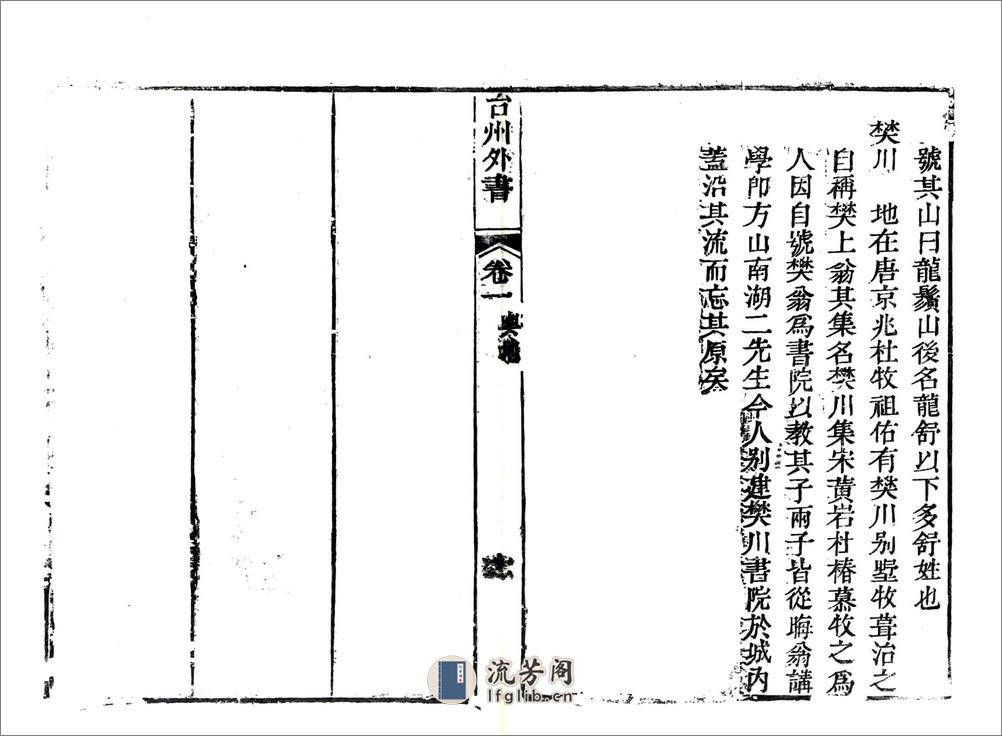 號其山曰龍鬚山後名龍舒以下多舒姓也
樊川　地在唐京兆杜牧祖佑有樊川別墅牧葺治之
自稱樊上翁其集名樊川集宋黃岩杜椿慕牧之爲
人因自號樊翁爲書院以教其子兩子皆從晦翁講
學卽方山南湖二先生今人別建樊川書院於城內
蓋沿其流而忘其原矣
台州外書
卷一
輿地
流芳阁
lfglib.cn